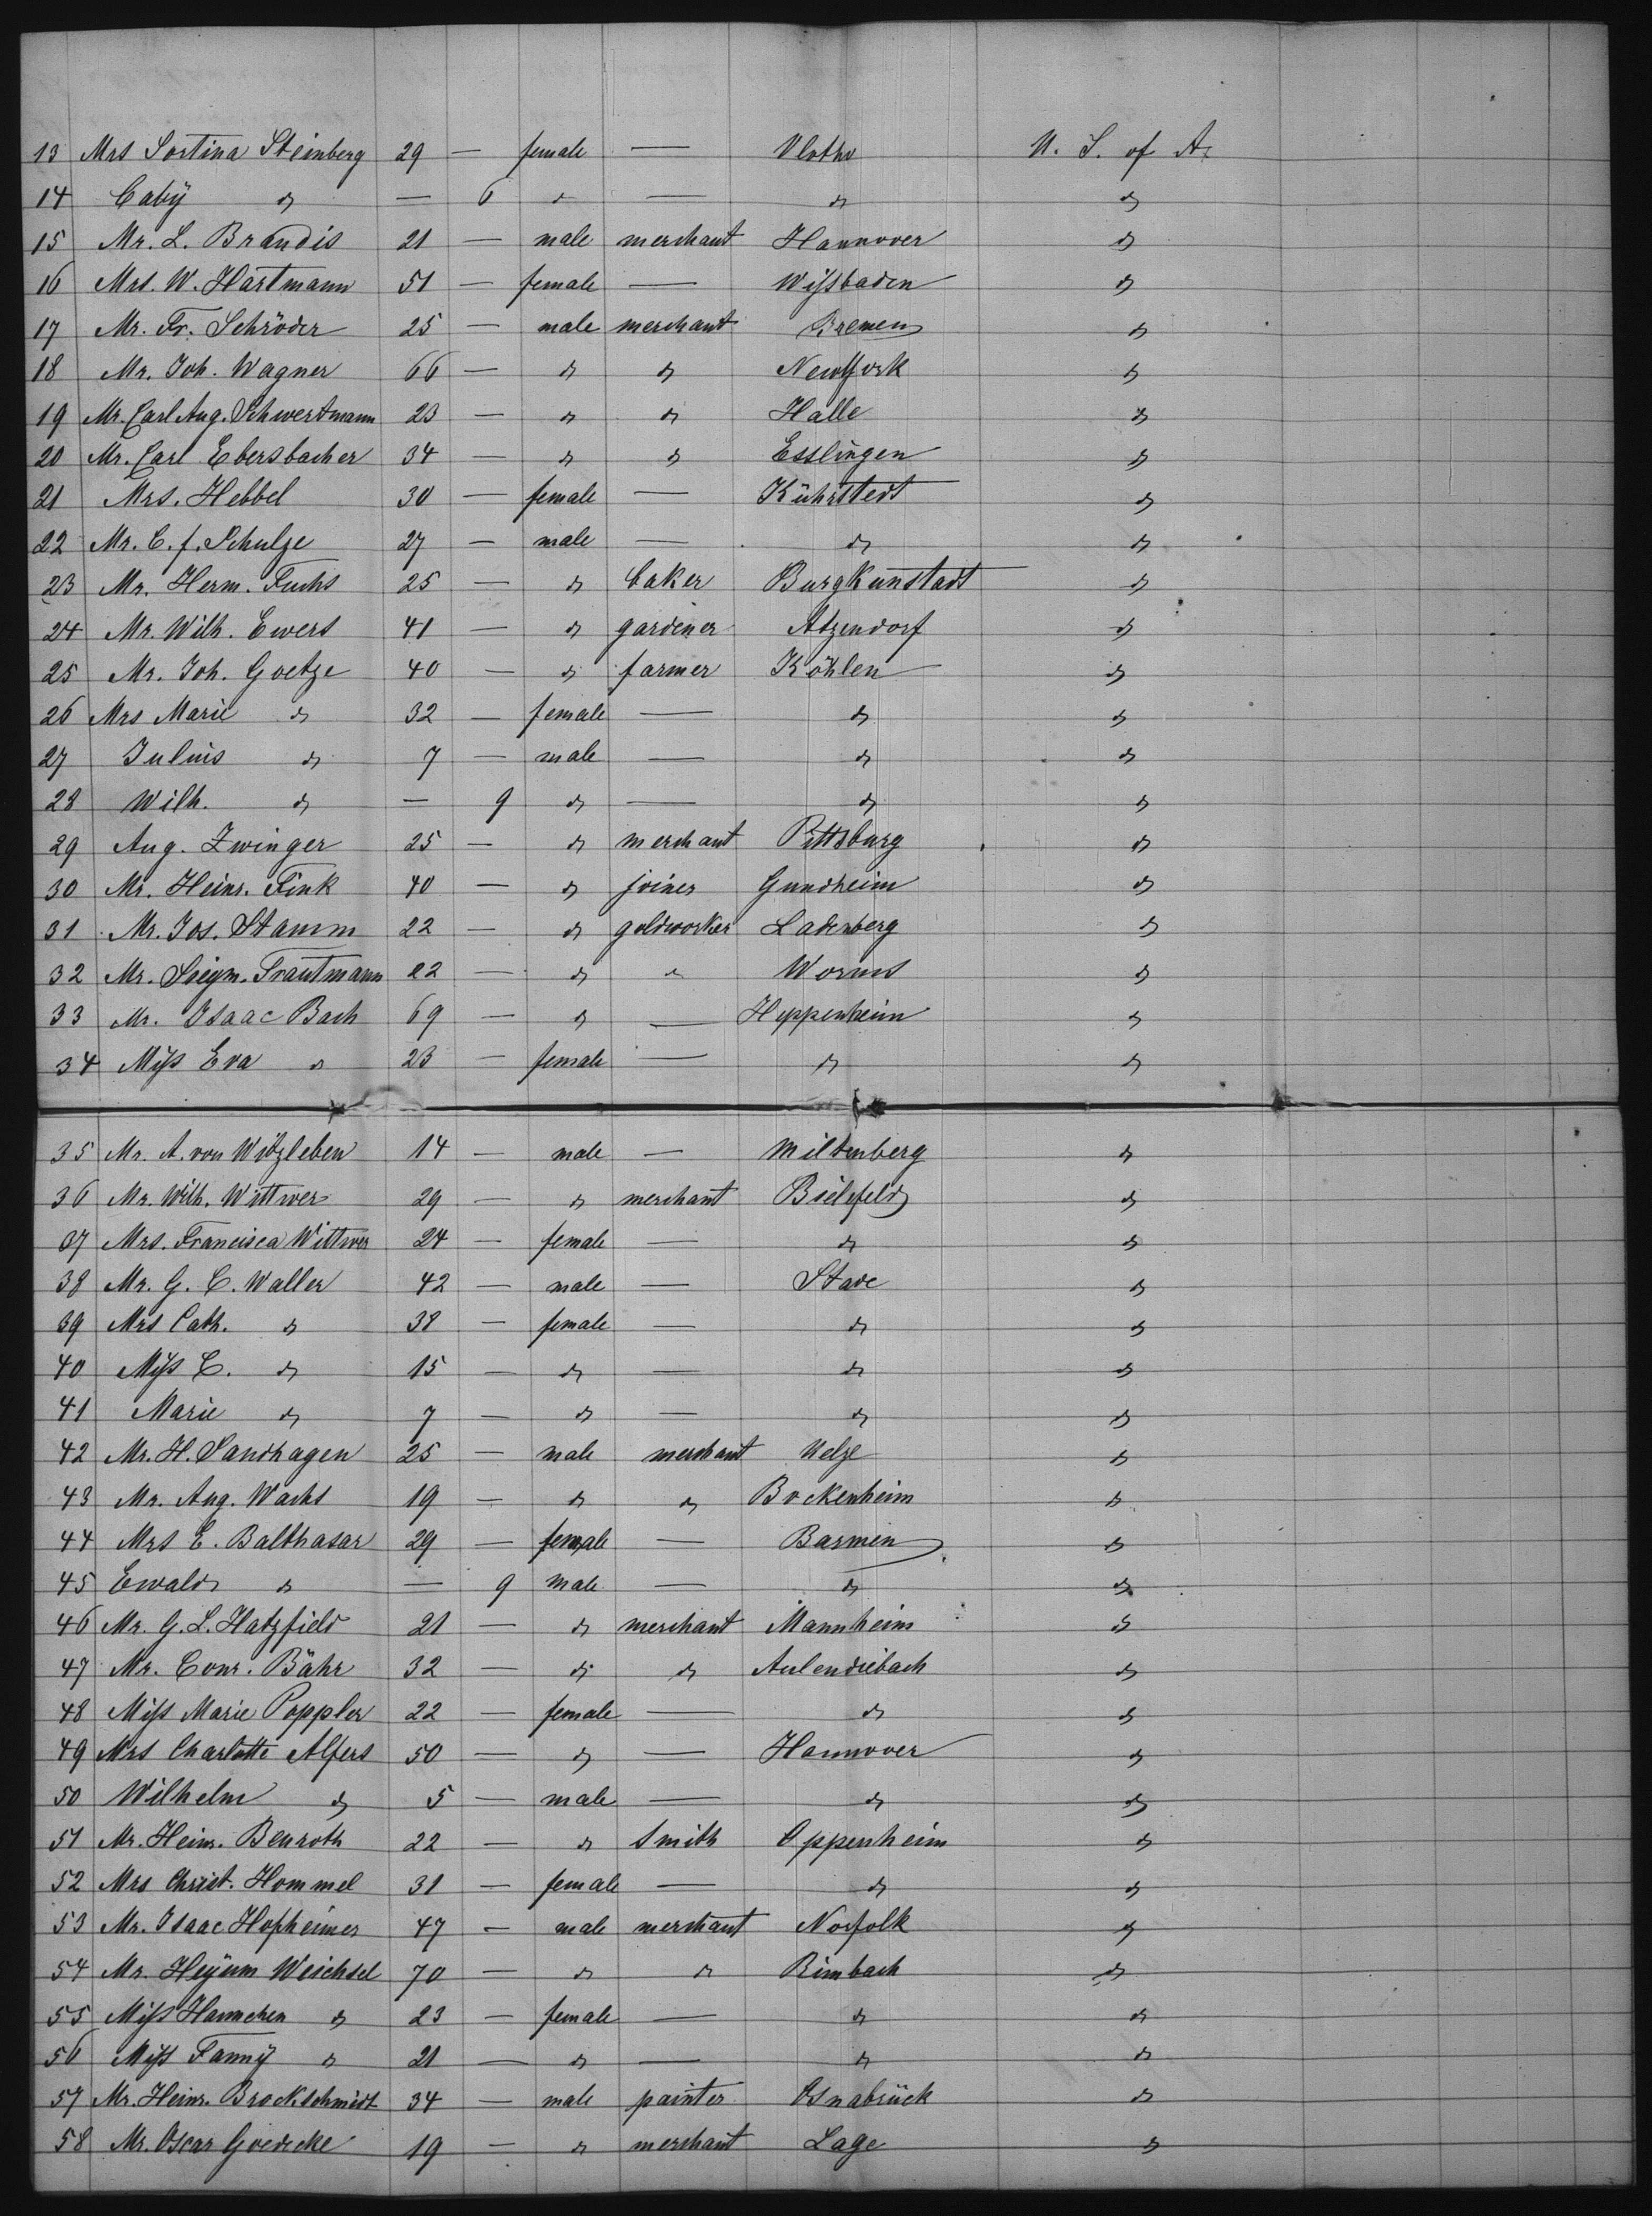 13 Mrs Sortina Steinberg 29 — female — Vlotho U. S. of A.
14 baby " — 6 " — " "
15 Mr. L. Brandis 21 — male merchant Hannover "
16 Mrs. W. Hartmann 51 — female — Wissbaden "
17 Mr. Fr. Schröder 25 — male merchant Bremen "
18 Mr. Joh. Wagner 66 — " " NewYork "
19 Mr. Carl Aug. Schwertmann 23 — " " Halle "
20 Mr. Carl Ebersbacher 34 — " " Esslingen "
21 Mrs. Hebbel 30 — female — Kührstedt "
22 Mr. C. f. Schulze 27 — male — " "
23 Mr. Herm. Fuchs 25 — " baker Burgkunnstadt "
24 Mr. Wilh. Ewers 41 — " gardener Atzendorf "
25 Mr. Joh. Goetze 40 — " farmer Köhlen "
26 Mrs Marie " 32 — female — " "
27 Julius " 7 — male — " "
28 Wilh. " — 9 " — " "
29 Aug. Zwinger 25 — " merchant Pittsburg "
30 Mr. Heinr. Fink 40 — " joiner Gundheim "
31 Mr. Jos. Stamm 22 — " goldworker Ladenberg "
32 Mr. Siegm. Trautmann 22 — " " Worms "
33 Mr. Isaac Bach 69 — " — Heppenheim "
34 Miss Eva " 23 — female — " "
35 Mr. A. von Witzleben 14 — male — Miltenberg "
36 Mr. Wilh. Wittwer 29 — " merchant Bielefeld "
37 Mrs. Francisca Wittwer 24 — female — " "
38 Mr. G. C. Waller 42 — male — Stade "
39 Mrs Cath. " 38 — female — " "
40 Miss C. " 15 — " — " "
41 Marie " 7 — " — " "
42 Mr. H. Sandhagen 25 — male merchant Uelze "
43 Mr. Aug. Wachs 19 — " " Bockenheim "
44 Mrs E. Balthasar 29 — female — Barmen "
45 Ewald " — 9 male — " "
46 Mr. G. L. Hatzfield 21 — " merchant Mannheim "
47 Mr. Conr. Bähr 32 — " " Aulendiebach "
48 Miss Marie Poppler 22 — female — " "
49 Mrs Charlotte Alfers 50 — " — Hannover "
50 Wilhelm " 5 — male — " "
51 Mr. Heinr. Benroth 22 — " Smith Oppenheim "
52 Mrs Christ. Hommel 31 — female — " "
53 Mr. Isaac Hofheimer 47 — male merchant Norfolk "
54 Mr. Heÿum Weichsel 70 — " " Rimbach "
55 Miss Hannchen " 23 — female — " "
56 Miss Fannÿ " 21 — " — " "
57 Mr. Heinr. Brockschmidt 34 — male painter Osnabrück "
58 Mr. Oscar Goedecke 19 — " merchant Lage "